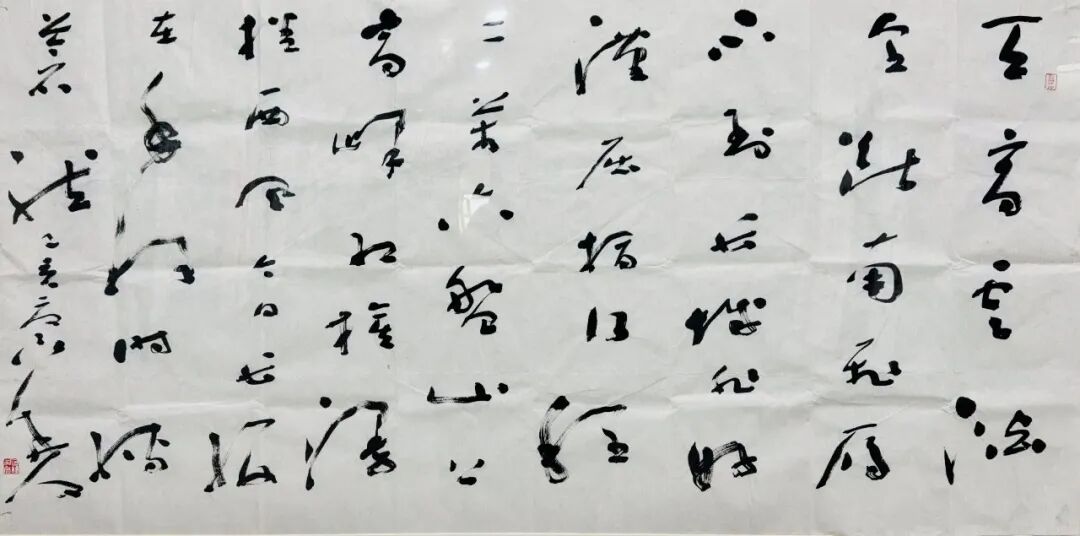 天高雲淡
望斷南飛雁
不到長城非好
漢屈指行程
二萬六盤山上
高峰紅旗漫
捲西風今日長纓
在手何時縛
蒼龍